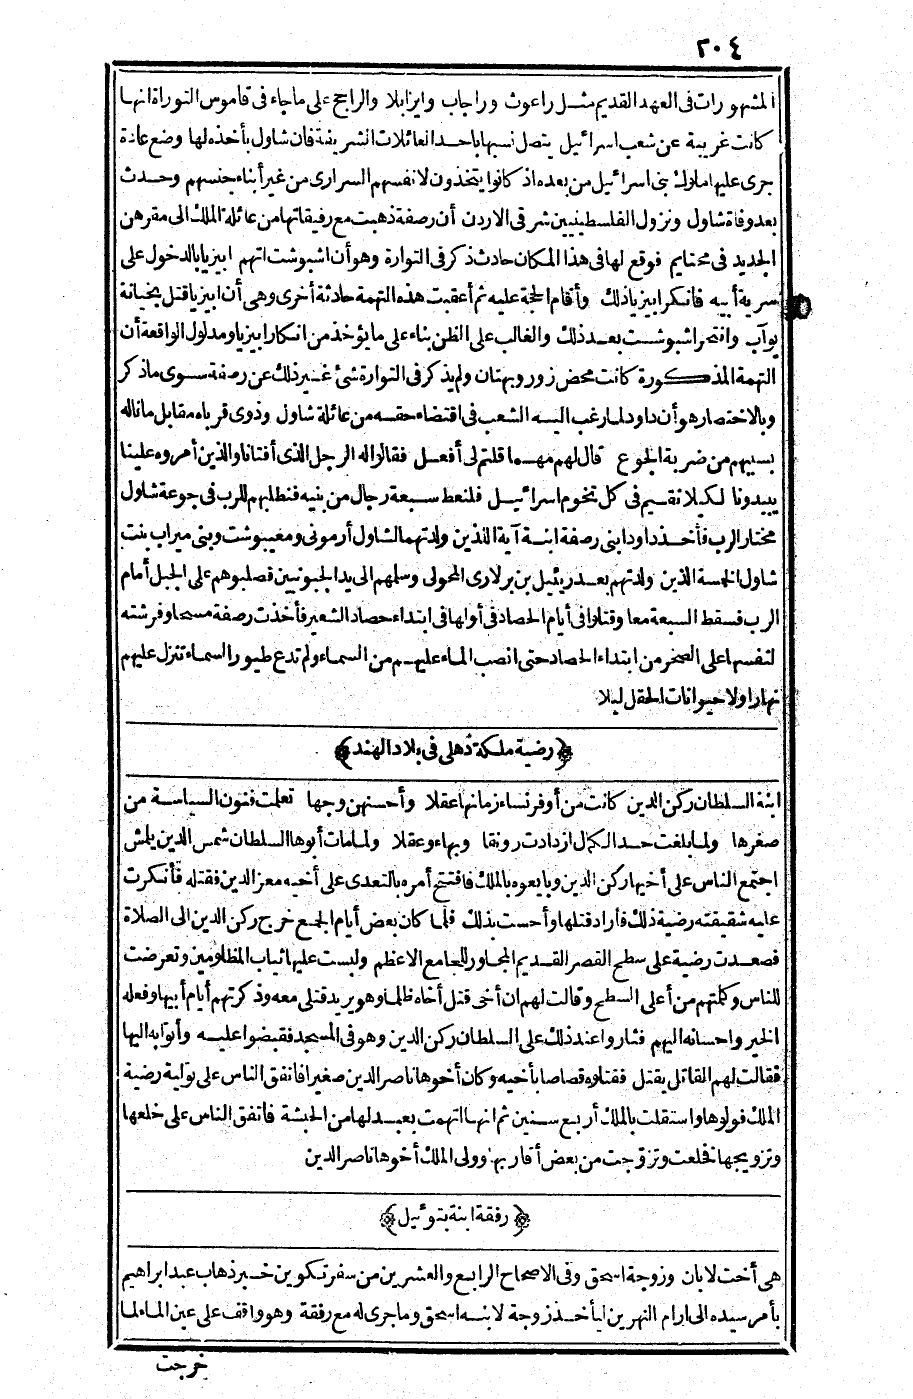 ٢٠٤
المشهورات فى العهد القديم مثل راعوث وراجاب وايزابلا والراجح على ماجاء فى قاموس التوراة انها
كانت غريبة عن شعب اسرائيل يتصل نسبها باحد العائلات الشريفة فان شاول بأخذه لها وضع عادة
جرى عليها ملوك بنى اسرائيل من بعده اذ كانوا يتخذون لانفسهم السرارى من غير أبناء جنسهم وحدث
بعد وفاة شاول ونزول الفلسطينيين شرقى الاردن أن رصفة ذهبت مع رفيقاتها من عائلة الملك الى مقرهن
الجديد فى محنايم فوقع لها فى هذا المكان حادث ذكر فى التوارة وهو أن اشبوشت اتهم ابيريا بالدخول على
سرية أبيه فانكر ابيريا ذلك وأقام الحجة عليه ثم أعقبت هذه التهمة حادثة أخرى وهى أن ابيريا قتل بخيانة
يوآب وانتحر اشبوشت بعد ذلك والغالب على الظن بناء على ما يؤخذ من انكار ابيريا ومدلول الواقعة أن
التهمة المذكورة كانت محض زور وبهتان ولم يذكر فى التوارة شئ غير ذلك عن رصفة سوى ماذكر
وبالاختصار هو أن داود لما رغب اليه الشعب فى اقتضاء حقه من عائلة شاول وذوى قرباه مقابل ماناله
بسببهم من ضربة الجوع قال لهم مهما قلتم لى أفعل فقالوا له الرجل الذى أفنانا والذين أمروه علينا
يبيدونا لكيلا نقيم فى كل تخوم اسرائيل فلنعط سبعة رجال من بنيه فنطلبهم للرب فى جوعة شاول
مختار الرب فأخذ داود ابنى رصفة ابنة آية اللذين ولدتهما لشاول أرمونى ومغيبوشت وبنى ميراب بنت
شاول الخمسة الذين ولدتهم بعدرئيل بن برلارى المحولى وسلمهم الى يد الجبونيين فصلبوهم على الجبل أمام
الرب فسقط السبعة معا وقتلوا فى أيام الحصاد فى أولها فى ابتداء حصاد الشعير فأخذت رصفة مسحا وفرشته
لنفسها على الصخر من ابتداء الحصاد حتى انصب الماء عليهم من السماء ولم تدع طيور السماء تنزل عليهم
نهارا ولا حيوانات الحقل ليلا
﴿رضية ملكة دهلى فى بلاد الهند﴾
ابنة السلطان ركن الدين كانت من أوفر نساء زمانها عقلا وأحسنهن وجها تعلمت فنون السياسة من
صغرها ولما بلغت حد الكمال ازدادت رونقا وبهاء وعقلا ولما مات أبوها السلطان شمس الدين يلمش
اجتمع الناس على أخيها ركن الدين وبايعوه بالملك فافتتح أمره بالتعدى على أخيه معز الدين فقتله فأنكرت
عليه شقيقته رضية ذلك فأراد قتلها وأحست بذلك فلما كان بعض أيام الجمع خرج ركن الدين الى الصلاة
فصعدت رضية على سطح القصر القديم المجاور للجامع الاعظم ولبست عليها ثياب المظلومين وتعرضت
للناس وكلمتهم من أعلى السطح وقالت لهم ان أخى قتل أخاه ظلما وهو يريد قتلى معه وذكرتهم أيام أبيها وفعله
الخير واحسانه اليهم فثاروا عند ذلك على السلطان ركن الدين وهو فى المسجد فقبضوا عليه وأتوا به اليها
فقالت لهم القاتل يقتل فقتلوه قصاصا بأخيه وكان أخوها ناصر الدين صغيرا فاتفق الناس على تولية رضية
الملك فولوها واستقلت بالملك أربع سنين ثم انها اتهمت بعبد لها من الحبشة فاتفق الناس على خلعها
وتزويجها فخلعت وتزوجت من بعض أقاربها وولى الملك أخوها ناصر الدين
﴿رفقة ابنة بتوئيل﴾
هى أخت لابان وزوجة اسحق وفى الاصحاح الرابع والعشرين من سفر تكوين خبر ذهاب عبد ابراهيم
بأمر سيده الى ارام النهرين ليأخذ زوجة لابنه اسحق وما جرى له مع رفقة وهو واقف على عين الماء لما
خرجت